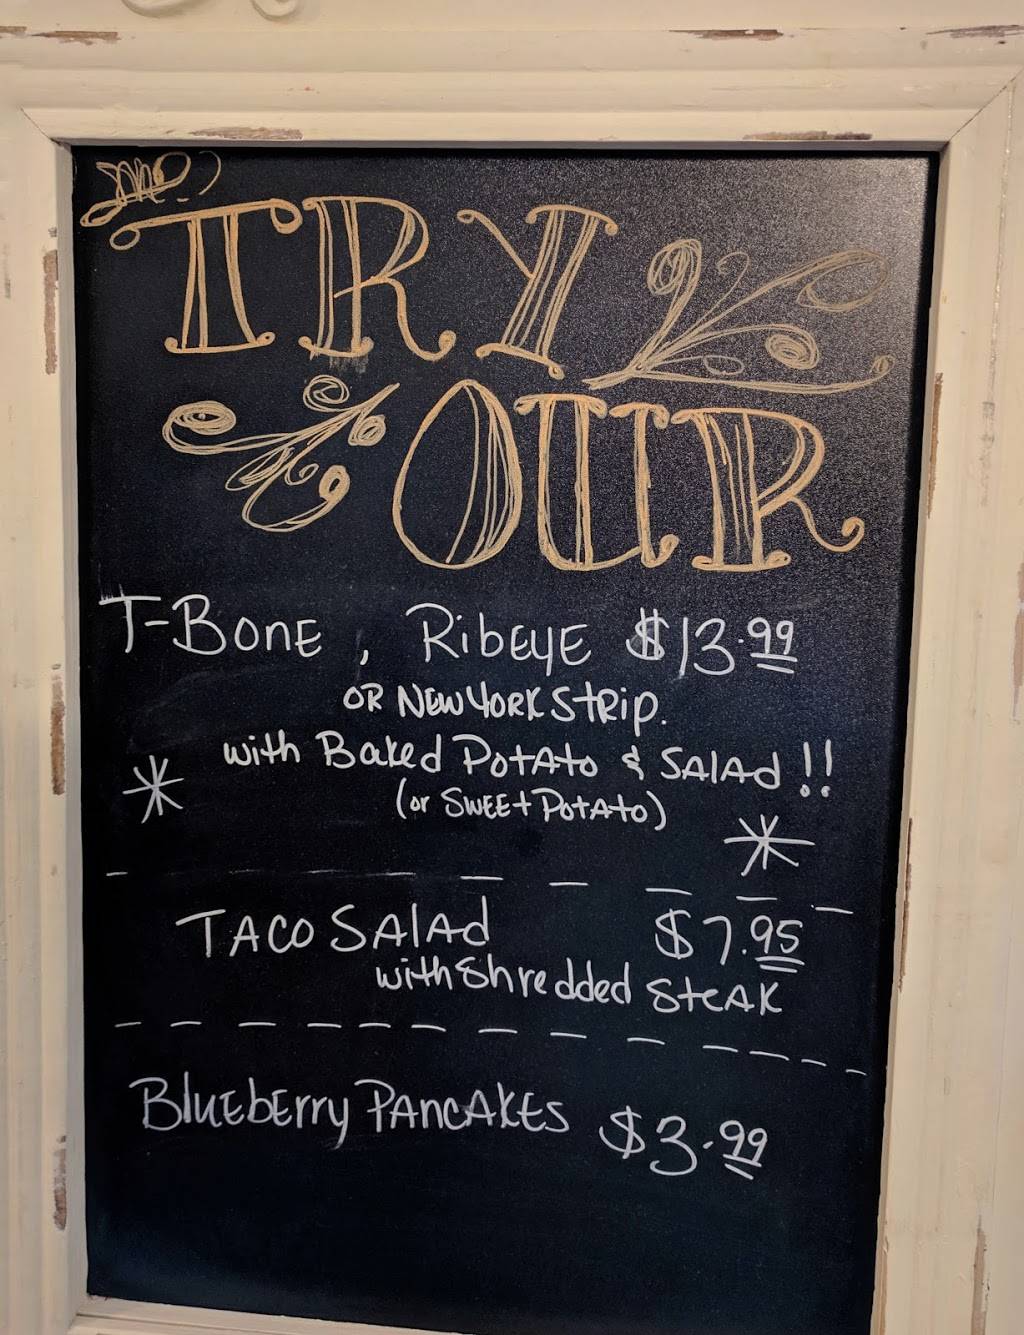 TRY
OUR
T-BONE, RibEYE $13.99
OR NEW YORK STRIP.
with Baked Potato & SALAd !!
(or SWEEt Potato)
TACO SALAd $7.95
with Shredded SteAK
BluEbErry PANCAKES $3.99